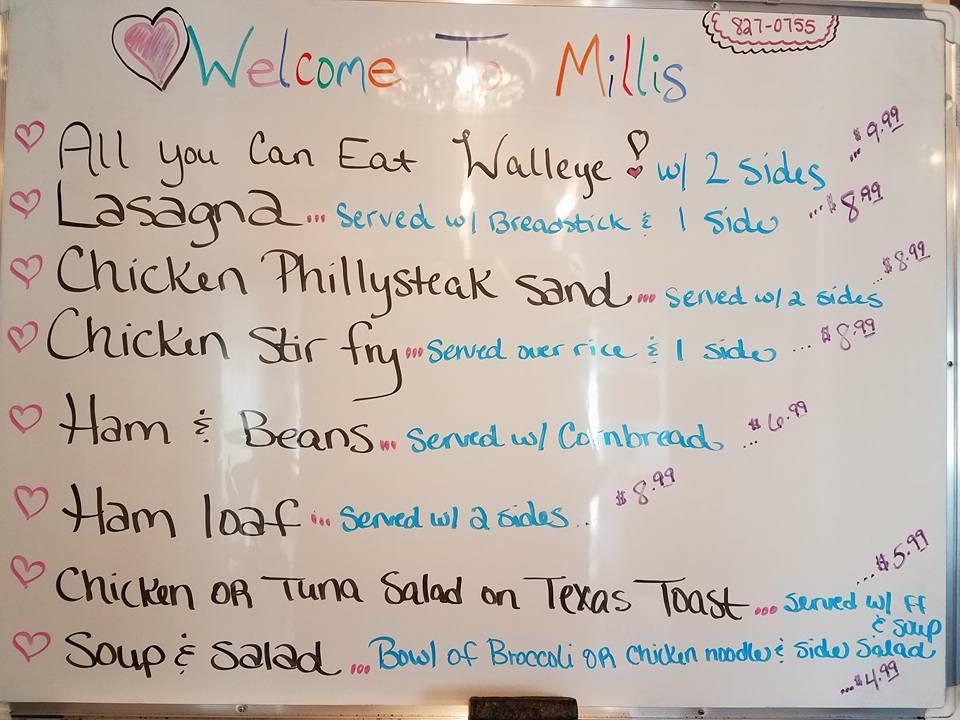 827-0755
Welcome To Millis
All you Can Eat Walleye! w/ 2 Sides ... $9.99
Lasagna ... Served w/ Breadstick & 1 Side ... $8.99
Chicken Phillysteak Sand ... Served w/ 2 sides ... $8.99
Chicken Stir fry ... Served over rice & 1 side ... $8.99
Ham & Beans ... Served w/ Cornbread ... $6.99
Ham loaf ... Served w/ 2 sides ... $8.99
Chicken OR Tuna Salad on Texas Toast ... Served w/ FF & Soup ... $5.99
Soup & Salad ... Bowl of Broccoli OR Chicken noodle & Side Salad ... $4.99